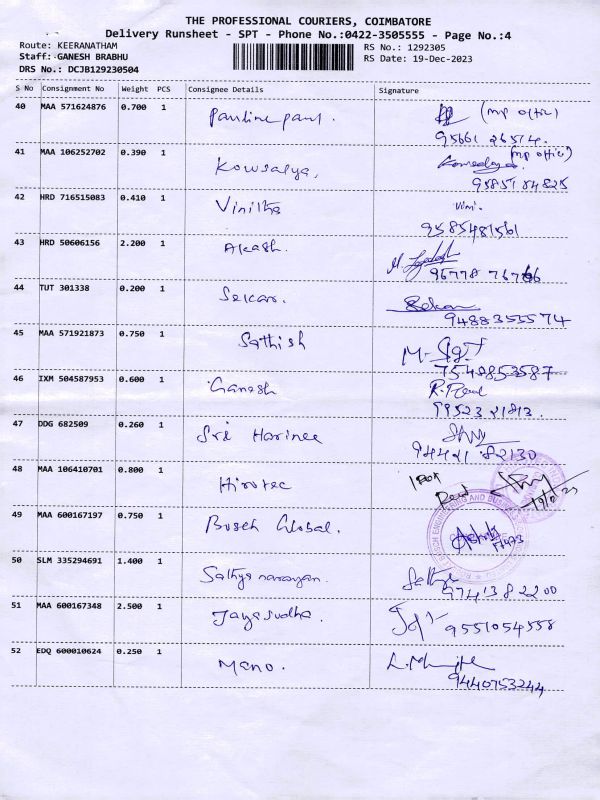 THE PROFESSIONAL COURIERS, COIMBATORE
Delivery Runsheet - SPT - Phone No.:0422-3505555 - Page No.:4
Route: KEERANATHAM
RS No.: 1292305
Staff: GANESH BRABHU
RS Date: 19-Dec-2023
DRS No.: DCJB129230504
S No Consignment No Weight PCS Consignee Details Signature
40 MAA 571624876 0.700 1 (mp office)
95661 26574.
41 MAA 106252702 0.390 1 Kowsalya, (mp office)
9585184825
42 HRD 716515083 0.410 1 Vinitha Vini.
9585481561
43 HRD 50606156 2.200 1 Akash.
96778 76766
44 TUT 301338 0.200 1 Sekar. Sekar
9488355574
45 MAA 571921873 0.750 1 Sathish
7540853587
46 IXM 504587953 0.600 1 Ganesh
99523 21813.
47 DDG 682509 0.260 1 Sri Harinee
94421 82130
48 MAA 106410701 0.800 1 Hirotec
49 MAA 600167197 0.750 1 Bosch Global.
50 SLM 335294691 1.400 1 Sathya narayan. Sathya
51 MAA 600167348 2.500 1 Jayasudha.
9551054558
52 EDQ 600010624 0.250 1 Mano.
9440753244